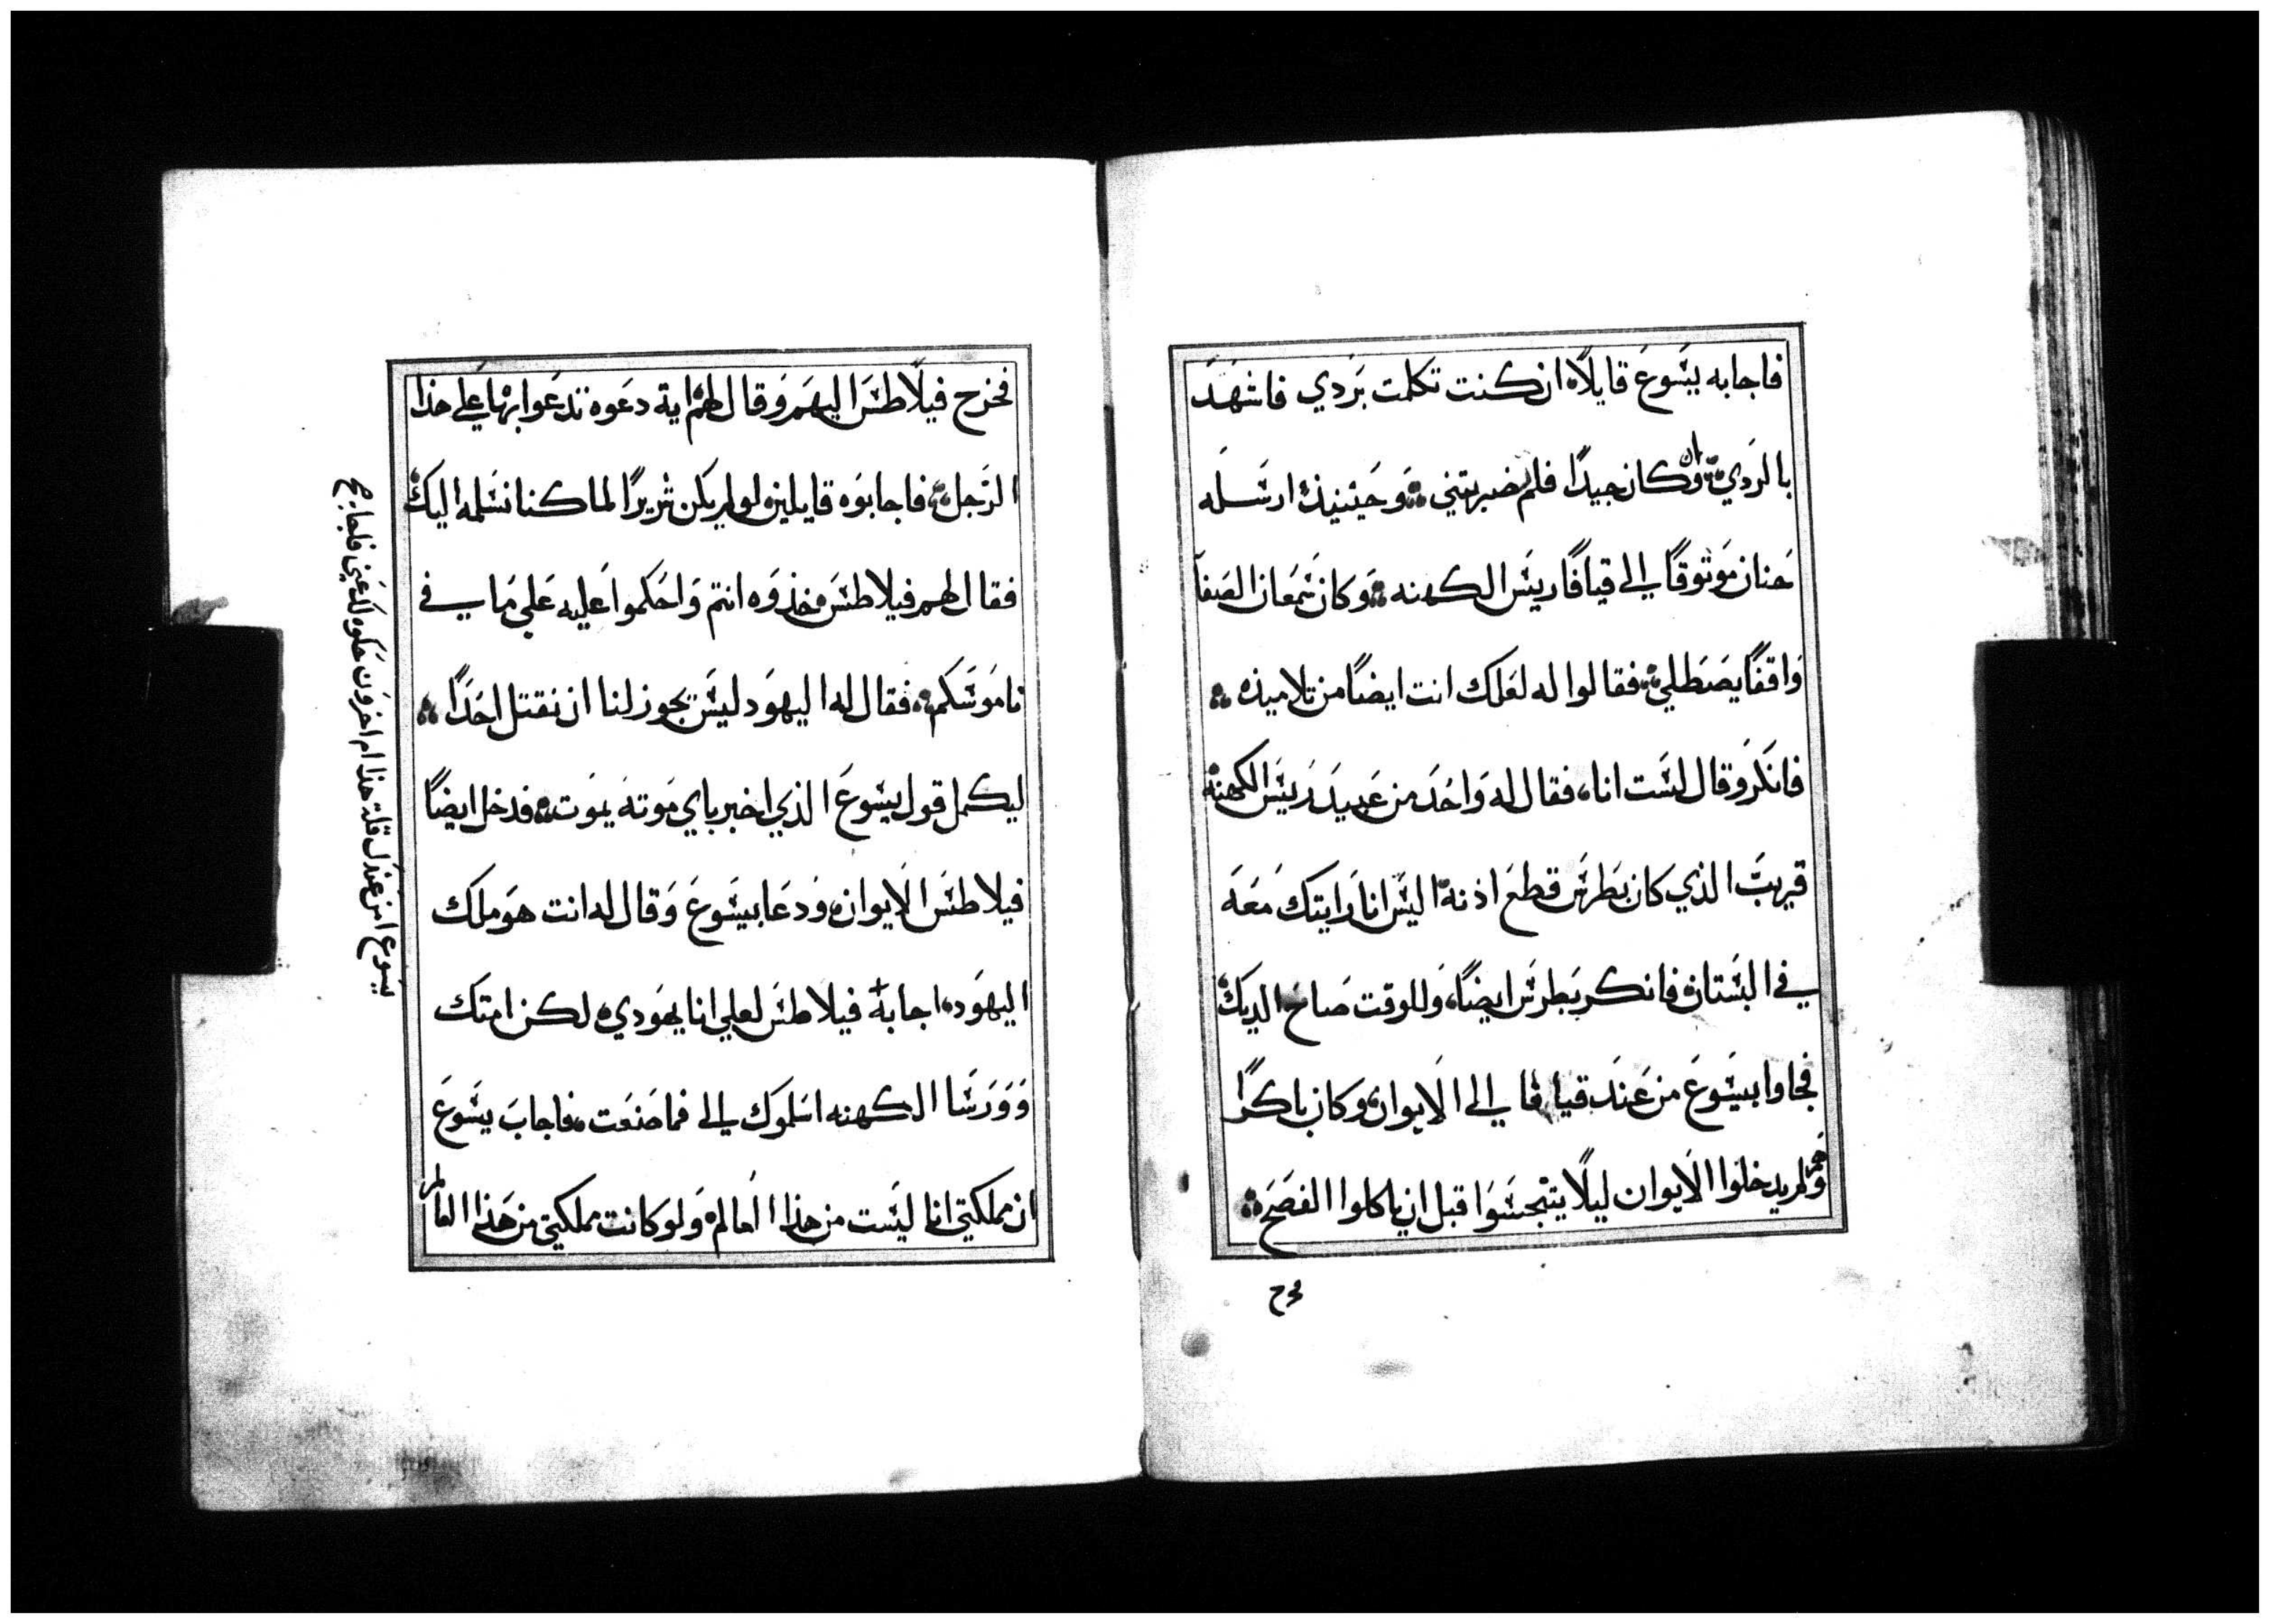 فاجابه يسوع قايلاً ان كنت تكلمت بردي فاشهد
بالردي وان كان جيداً فلم ضربتني وحينيذ ارسله
حنان موثوقاً الي قيافا رييس الكهنه وكان سمعان الصفا
واقفاً يصطلي فقالوا له لعلك انت ايضاً من تلاميذه
فانكر وقال لست انا فقال له واحد من عبيد رييس الكهنة
قريب الذي كان بطرس قطع اذنه اليس انا رايتك معه
في البستان فانكر بطرس ايضاً وللوقت صاح الديك
فجاوا بيسوع من عند قيافا الي الايوان وكان باكراً
وهم لم يدخلوا الايوان ليلا يتنجسوا قبل ان ياكلوا الفصح
فخرج فيلاطس اليهم وقال لهم اية دعوه تدعوا بها علي هذا
الرجل فاجابوه قايلين لو لم يكن شريراً لما كنا نسلمه اليك
فقال لهم فيلاطس خذوه انتم واحكموا عليه علي ما في
ناموسكم فقال له اليهود ليس يجوز لنا ان نقتل احداً
ليكمل قول يسوع الذي اخبر باي موتة يموت فدخل ايضاً
فيلاطس الايوان ودعا بيسوع وقال له انت هو ملك
اليهود اجابه فيلاطس لعلي انا يهودي لكن امتك
وورسا الكهنه اسلموك الي فما صنعت فاجاب يسوع
ان مملكتي انا ليست من هذا العالم ولو كانت مملكتي من هذا العالم
يسوع امن عندك قلت هذا ام اخرون حكوه لك عني فاجابه